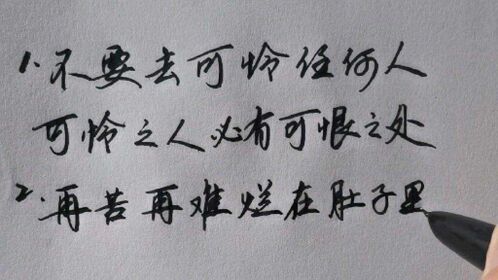 1.不要去可怜任何人
可怜之人必有可恨之处
2.再苦再难烂在肚子里